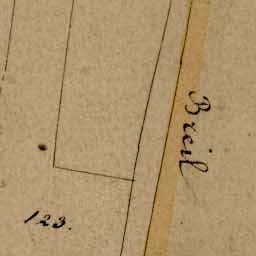 Breil
123.